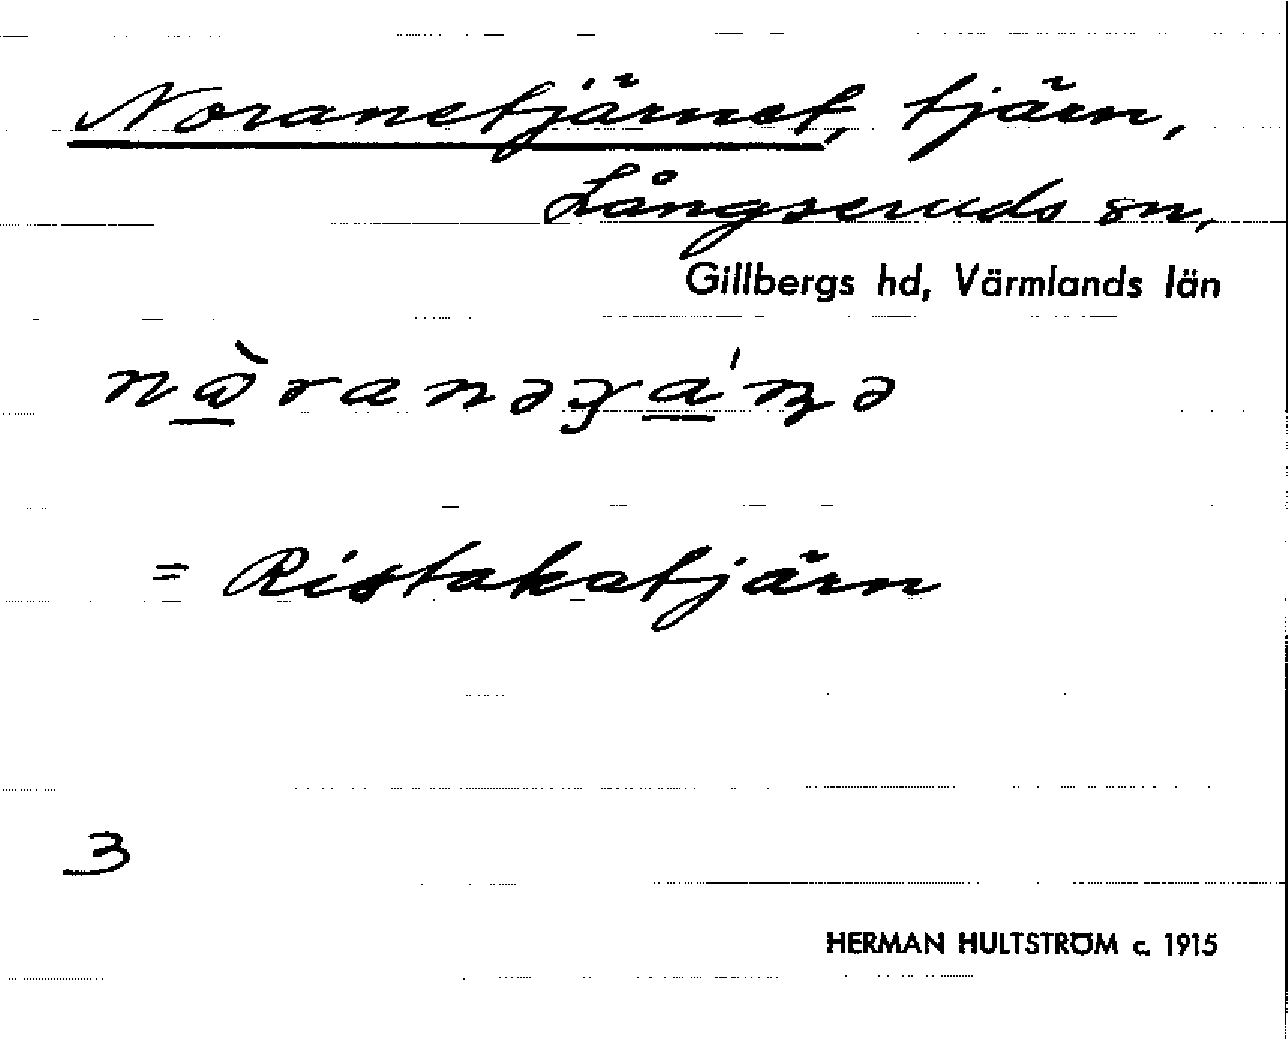 Noranetjärnet, tjärn,
Långseruds sn,
Gillbergs hd, Värmlands län
= Ristakatjärn
3
HERMAN HULTSTRÖM c. 1915